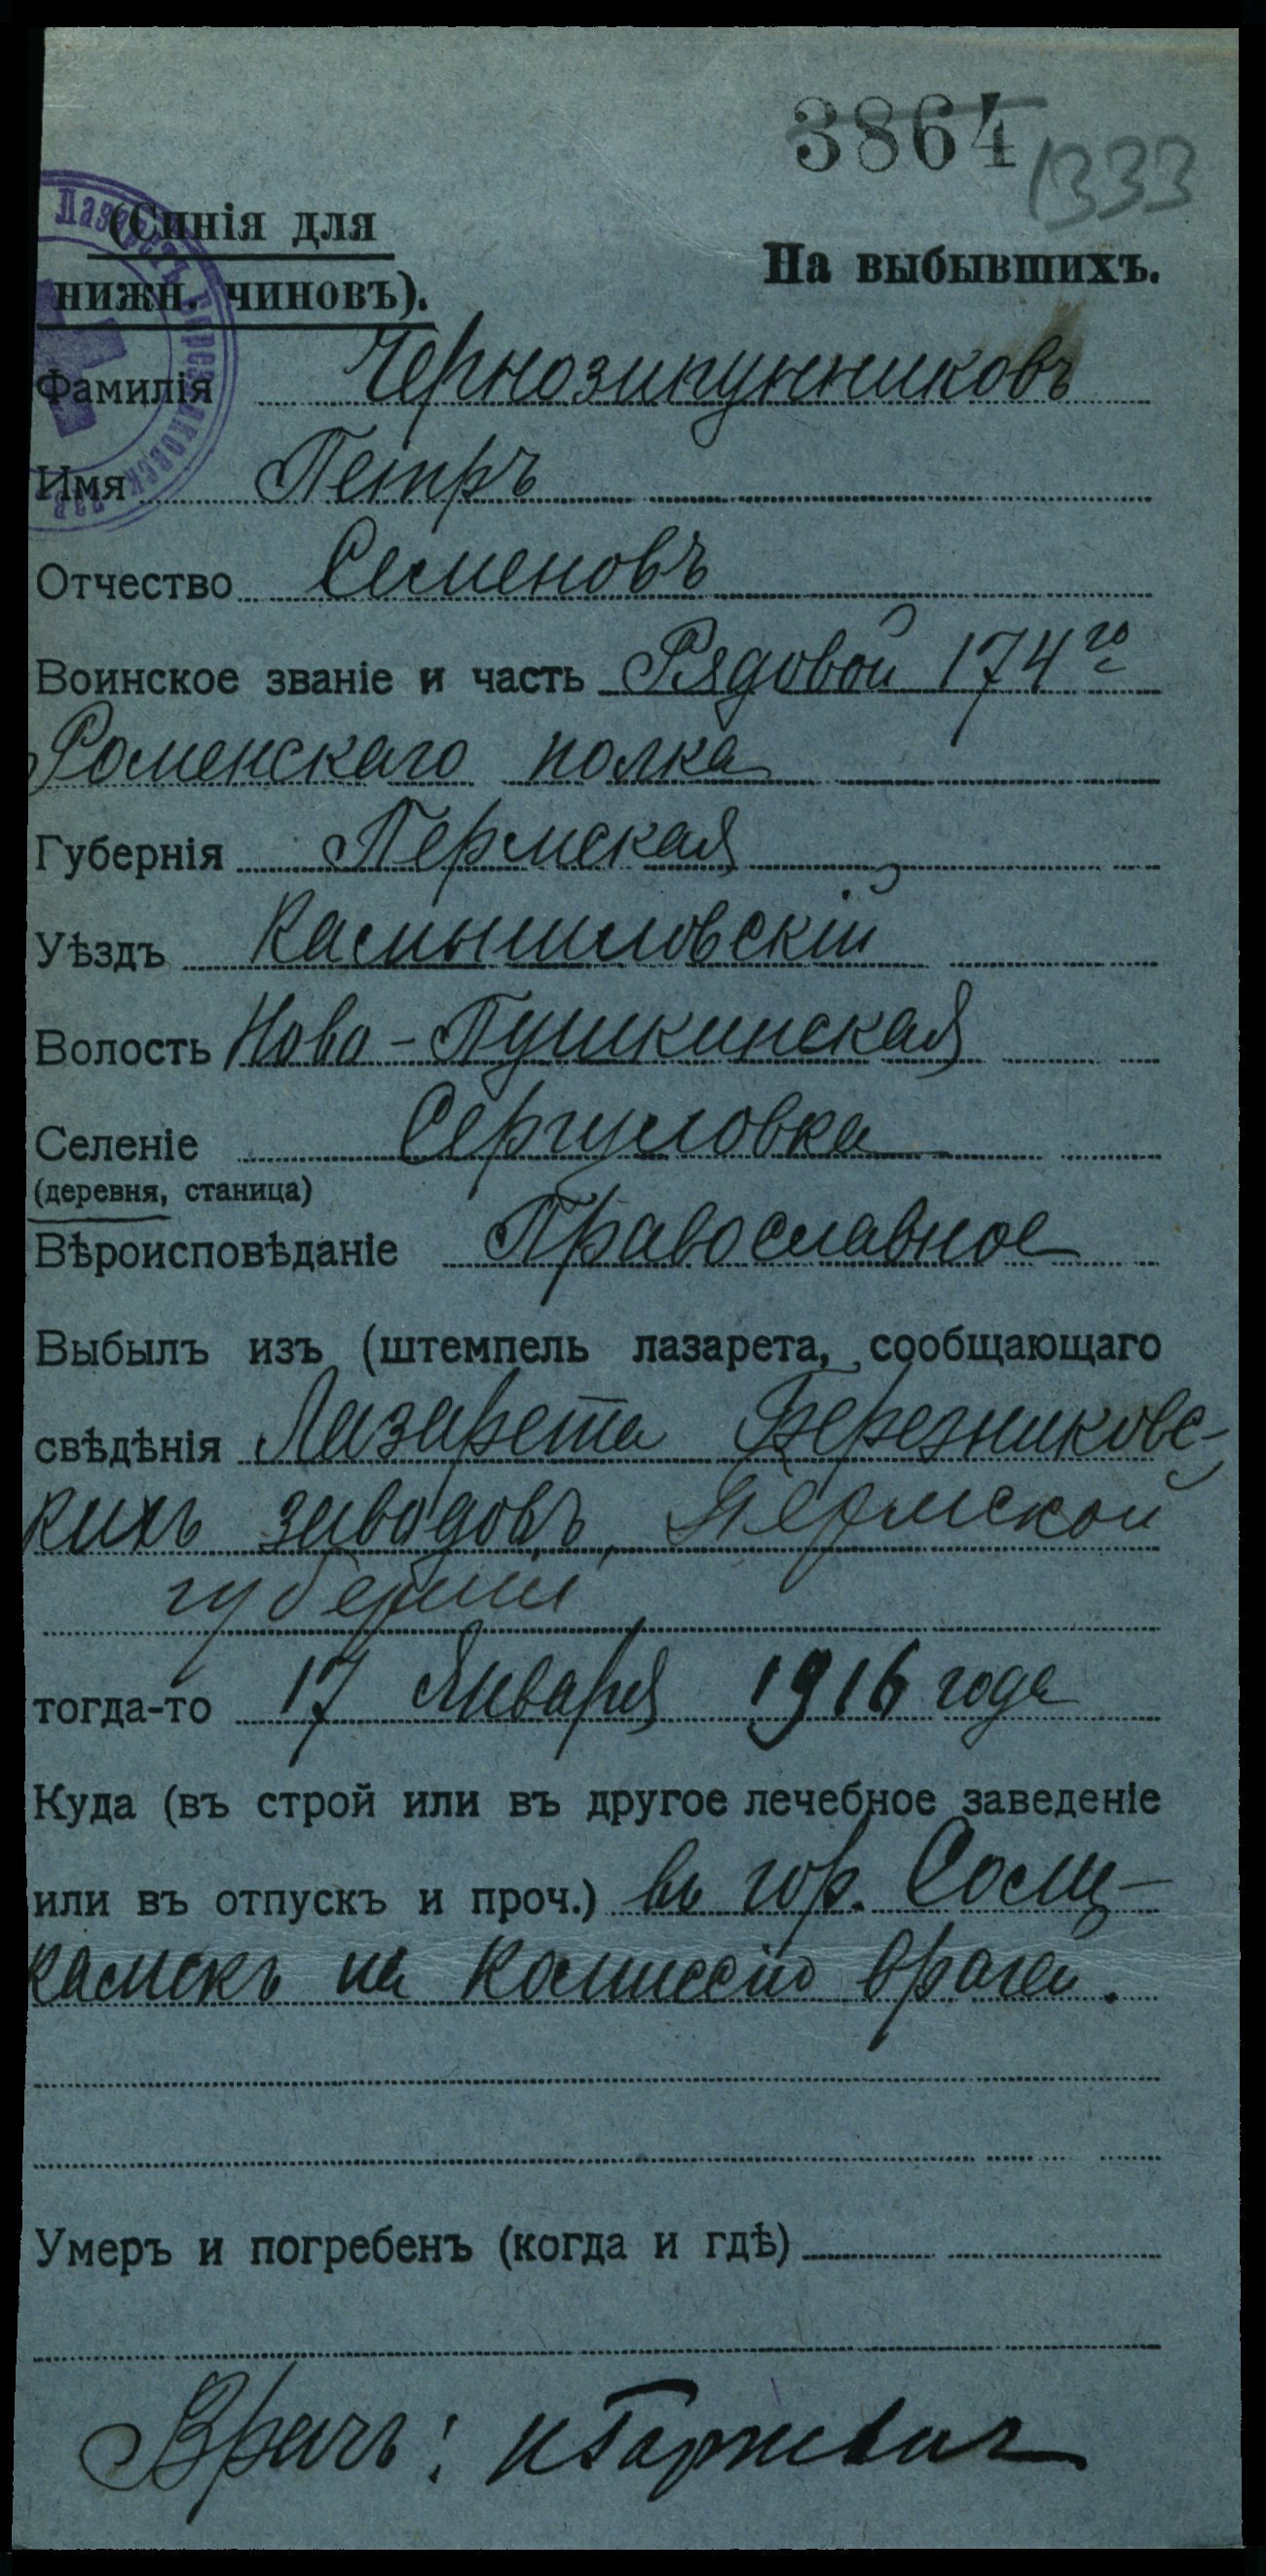 3864
1333
Лазаретъ Березниковск. зав.
(Синія для
нижн. чиновъ).
На выбывшихъ.
Фамилія Чернозипунниковъ
Имя Петръ
Отчество Семеновъ
Воинское званіе и часть Рядовой 174го
Роменскаго полка
Губернія Пермская
Уѣздъ Камышловскій
Волость Ново-Пушкинская
Селеніе Сергуловка
(деревня, станица)
Вѣроисповѣданіе Православное
Выбылъ изъ (штемпель лазарета, сообщающаго
свѣдѣнія Лазарета Березниковс-
кихъ заводовъ, Пермской
губерніи
тогда-то 17 Января 1916 года
Куда (въ строй или въ другое лечебное заведеніе
или въ отпускъ и проч.) въ гор. Солик-
камскъ на Комиссію врачей.
Умеръ и погребенъ (когда и гдѣ)
Врачъ: